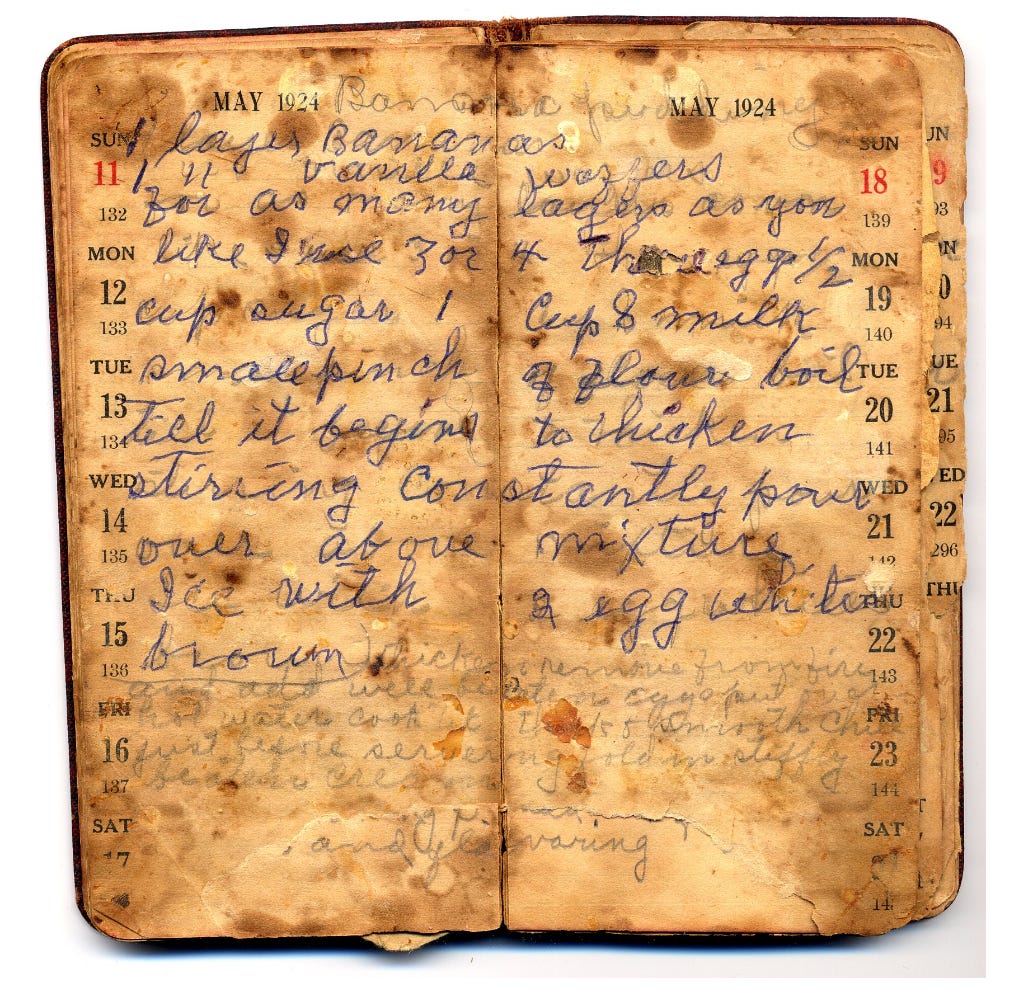 MAY 1924 Banana pudding MAY 1924
SUN 1 layer Bananas SUN UN
11 1 " vanilla wafers 18 9
132 For as many layers as you 139 93
MON like I use 3 or 4 eggs 1/2 MON ON
12 cup sugar 1 Cup milk 19 0
133 140 94
TUE small pinch of flour boil TUE UE
13 till it begins to thicken 20 21
134 141 95
WED stiring constantly pour WED ED
14 over above mixture 21 22
135 142 296
THU Ice with 2 egg white THU THU
15 brown 22
136 thicken remove from fire 143
and add well beaten eggs put over
FRI hot water cook til thick & smooth chill FRI
16 just before servering fold in stiffly 23
137 beaten cream 144
SAT and flavoring SAT
17
14